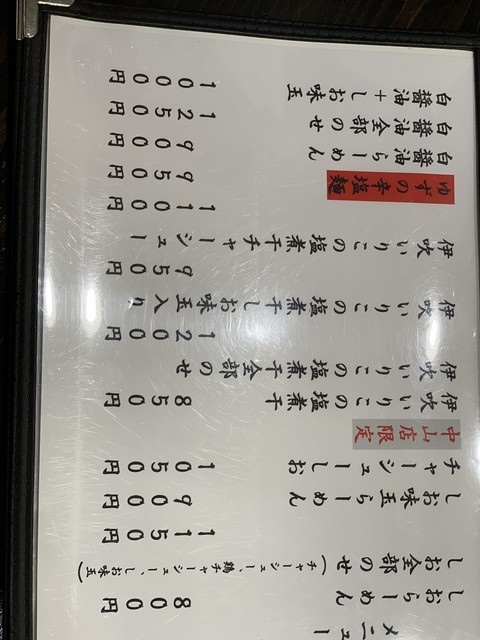 メニュー
しおらーめん 800円
しお全部のせ（チャーシュー、鶏チャーシュー、しお味玉） 1150円
しお味玉らーめん 900円
チャーシューしお 1050円
中山店限定
伊吹いりこの塩煮干 850円
伊吹いりこの塩煮干全部のせ 1200円
伊吹いりこの塩煮干しお味玉入り 950円
伊吹いりこの塩煮干チャーシュー 1100円
ゆずの辛塩麺 950円
白醤油らーめん 900円
白醤油全部のせ 1250円
白醤油+しお味玉 1000円